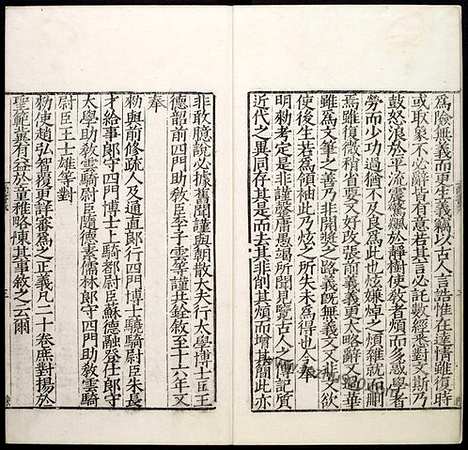 爲險無義而更生義竊以古人言誥惟在達情雖復時
或取象不必辭皆有意若其言必託數經悉對文斯乃
鼓怒浪於平流震驚飈於靜樹使教者煩而多惑學者
勞而少功過猶不及良爲此也炫嫌焯之煩雜就而刪
焉雖復微稍省要又好改張前義義更太略辭又過華
雖爲文筆之善乃非開奬之路義既無義文又非文欲
使後生若爲領袖此乃炫之所失未爲得也今奉
明勑考定是非謹罄庸愚竭所聞見覽古人之傳記質
近代之異同存其是而去其非削其煩而增其簡此亦
非敢臆說必據舊聞謹與朝散大夫行太學博士臣王
德韶前四門助教臣李子雲等謹共銓敘至十六年又
奉
勑與前修疏人及通直郎行四門博士驍騎尉臣朱長
才給事郎守四門博士上騎都尉臣蘇德融登仕郎守
太學助教雲騎尉臣隨德素儒林郎守四門助教雲騎
尉臣王士雄等對
勑使趙弘智覆更詳審爲之正義凡二十卷庶對揚於
聖範冀有益於童稚略陳其事敘之云爾